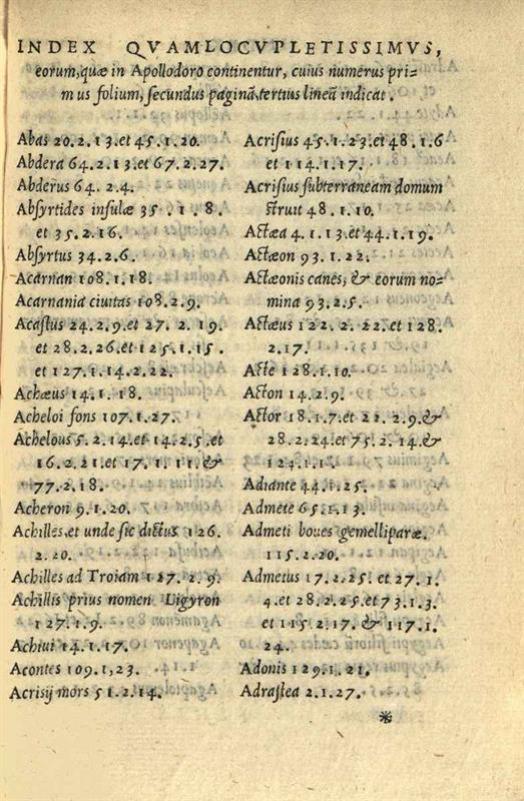 INDEX QVAMLOCVPLETISSIMVS,
eorum, quæ in Apollodoro continentur, cuius numerus pri=
mus folium, secundus paginã, tertius lineã indicat.
Abas 20.2.13.et 45.1.20.
Abdera 64.2.13.et 67.2.27.
Abderus 64.2.4.
Absyrtides insulæ 35.1.8.
et 35.2.16.
Absyrtus 34.2.6.
Acarnan 108.1.18.
Acarnania ciuitas 108.2.9.
Acastus 24.2.9.et 27.2.19.
et 28.2.26.et 125.1.15.
et 127.1.14.2.22.
Achæus 14.1.18.
Acheloi fons 107.1.27.
Achelous 5.2.14.et 14.2.5.et
16.2.21.et 17.1.11.&
77.2.18.
Acheron 9.1.20.
Achilles, et unde sic dictus 126.
2.20.
Achilles ad Troiam 127.2.9.
Achillis prius nomen Uigyron
127.1.9.
Achiui 14.1.17.
Acontes 109.1,23.
Acrisij mors 51.2.14.
Acrisius 45.1.23.et 48.1.6
et 114.1.17.
Acrisius subterraneam domum
struit 48.1.10.
Actæa 4.1.13.et 44.1.19.
Actæon 93.1.22.
Actæonis canes, & eorum no=
mina 93.2.5.
Actæus 122.2.22.et 128.
2.17.
Acte 128.1.10.
Acton 14.2.9.
Actor 18.1.7.et 22.2.9.&
28.2.24.et 75.2.14.&
124.1.1.
Adiante 44.1.25.
Admete 65.1.13.
Admeti boues gemelliparæ.
115.2.20.
Admetus 17.2.25.et 27.1.
4.et 28.2.25.et 73.1.3.
et 115.2.17.& 117.1.
24.
Adonis 129.1.21.
Adrastea 2.1.27.
*